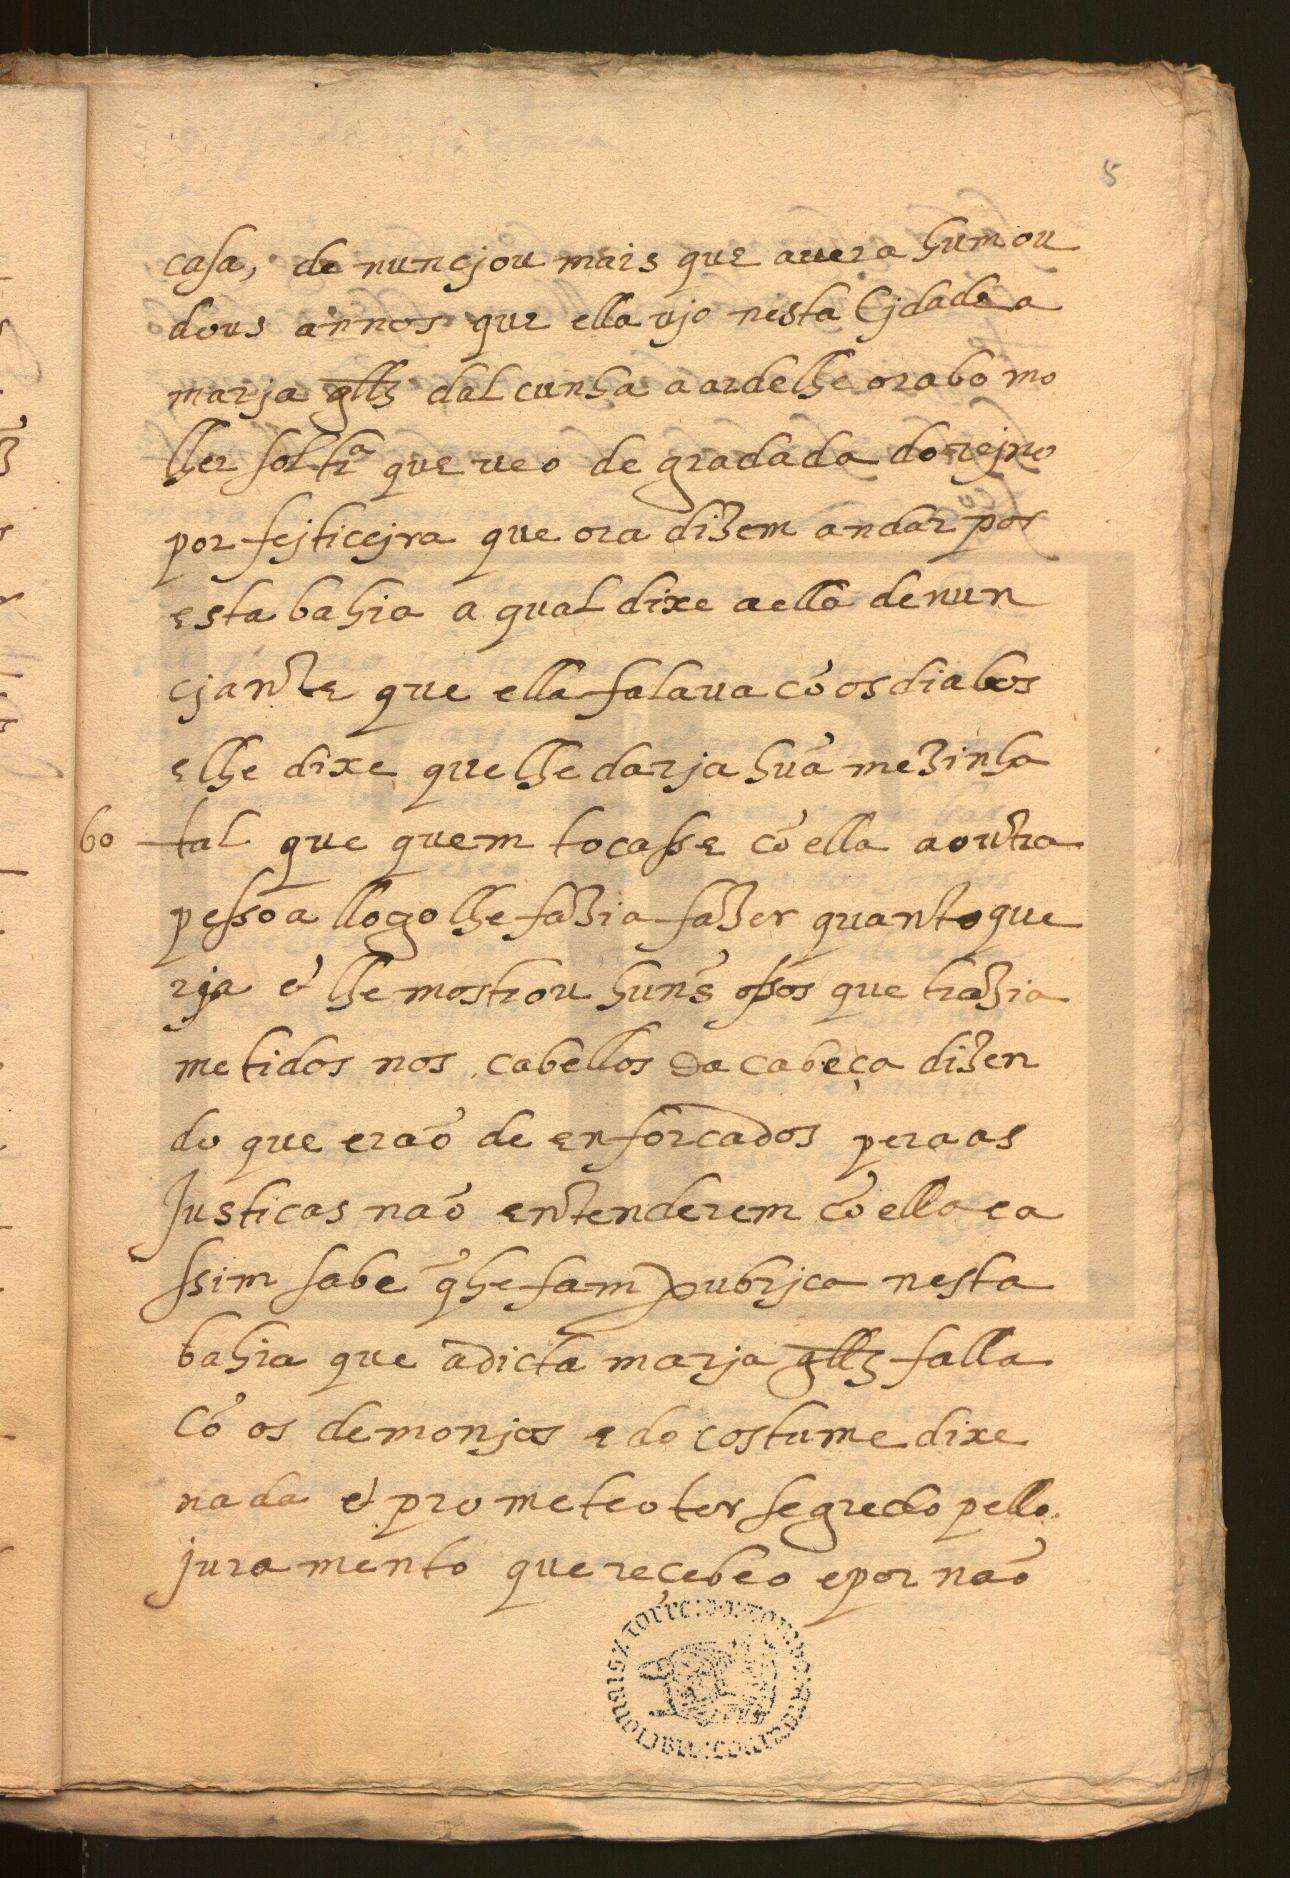 5
casa, denuncjou mais que avera hum ou
dous annos que ella vjo nesta Cjdade a
marja glłz dalcunha a ardelhe o rabo mo
lher soltra que veo degradada do rejno
por fejticejra que ora dizem andar por
esta bahia a qual dixe a ella denun
cjante que ella falava cõ os diabos
e lhe dixe que lhe darja huã mezinha
60 tal que quem tocasse cõ ella a outra
pessoa llogo lhe fazia fazer quanto que
rja e lhe mostrou huns ossos que trazia
metidos nos cabellos da cabeça dizen
do que eraõ de enforcados pera as
Justicas naõ entenderem cõ ella e a
ssim sabe q̃ he fam pubrjca nesta
bahia que a dicta marja glłz falla
cõ os demonjos e do costume dixe
nada e prometeo ter segredo pello
juramento que reçebeo e por naõ